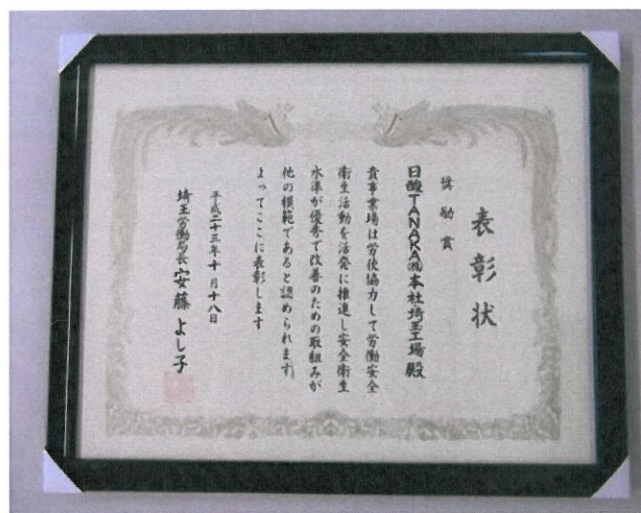 表彰状
奨励賞
日酸TANAKA㈱本社埼玉工場殿
貴事業場は労使協力して労働安全
衛生活動を活発に推進し安全衛生
水準が優秀で改善のための取組みが
他の模範であると認められます
よってここに表彰します
平成二十三年十月十八日
埼玉労働局長安藤よし子